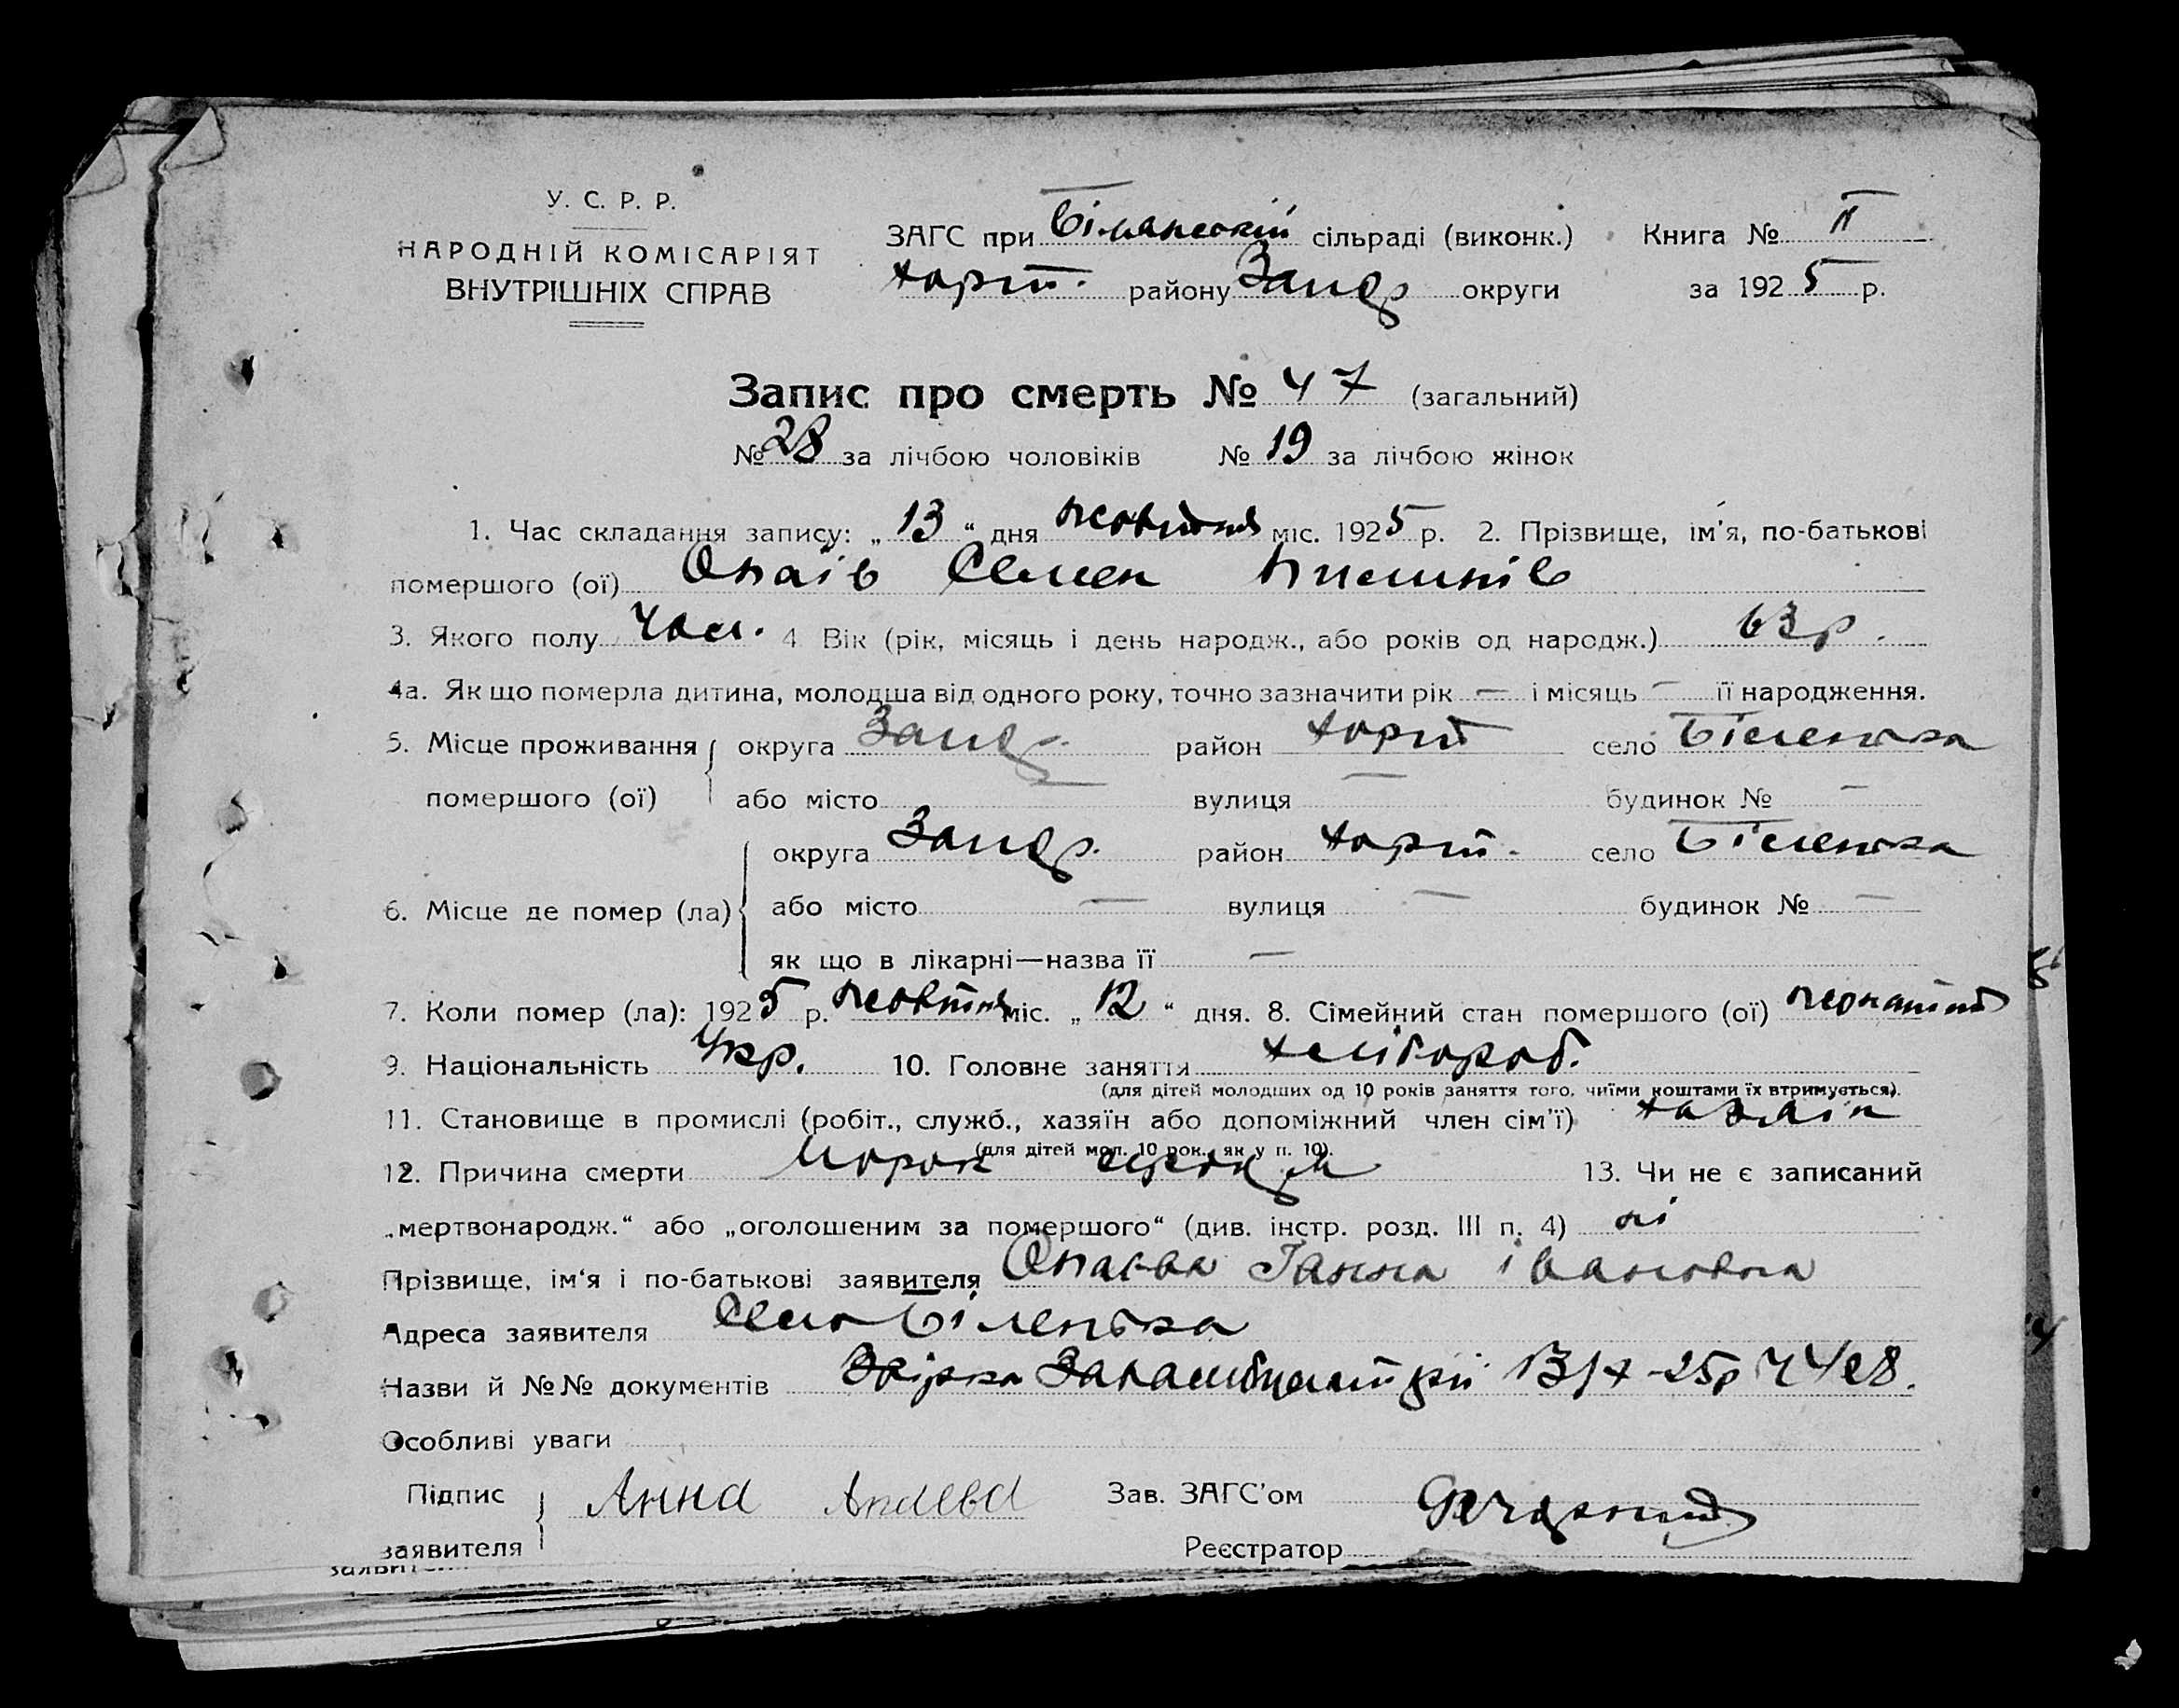 У. С. Р. Р.
НАРОДНІЙ КОМІСАРІЯТ
ВНУТРІШНІХ СПРАВ
ЗАГС при Біланській сільраді (виконк.) Книга № II
Хорт. району Запор округи за 1925 р.
Запис про смерть № 47 (загальний)
№ 28 за лічбою чоловіків № 19 за лічбою жінок
1. Час складання запису: „13“ дня жовтня міс. 1925 р. 2. Прізвище, ім'я, по-батькові
помершого (ої) Опаїв Семен
3. Якого полу Чол. 4 Вік (рік, місяць і день народж., або років од народж.) 63 р.
4а. Як що померла дитина, молодша від одного року, точно зазначити рік — і місяць — її народження.
5. Місце проживання округа Запор. район Хорт село Біленька
помершого (ої) або місто вулиця — будинок № —
округа Запор. район Хорт. село Біленька
6. Місце де помер (ла) або місто — вулиця — будинок № —
як що в лікарні—назва її —
7. Коли помер (ла): 1925 р. жовтня міс. „12“ дня. 8. Сімейний стан помершого (ої) жонатий
9. Національність Укр. 10. Головне заняття хлібороб.
(для дітей молодших од 10 років заняття того, чиїми коштами їх втримується).
11. Становище в промислі (робіт., служб., хазяїн або допоміжний член сім'ї) хазяїн
(для дітей мол. 10 рок., як у п. 10).
12. Причина смерти Порок сердця 13. Чи не є записаний
„мертвонародж.“ або „оголошеним за помершого“ (див. інстр. розд. III п. 4) ні
Прізвище, ім'я і по-батькові заявителя Опаєва Ганна Івановна
Адреса заявителя Село Біленька
Назви й №№ документів 13/X-25р
Особливі уваги
Підпис Анна Апаева Зав. ЗАГС'ом
заявителя Реєстратор